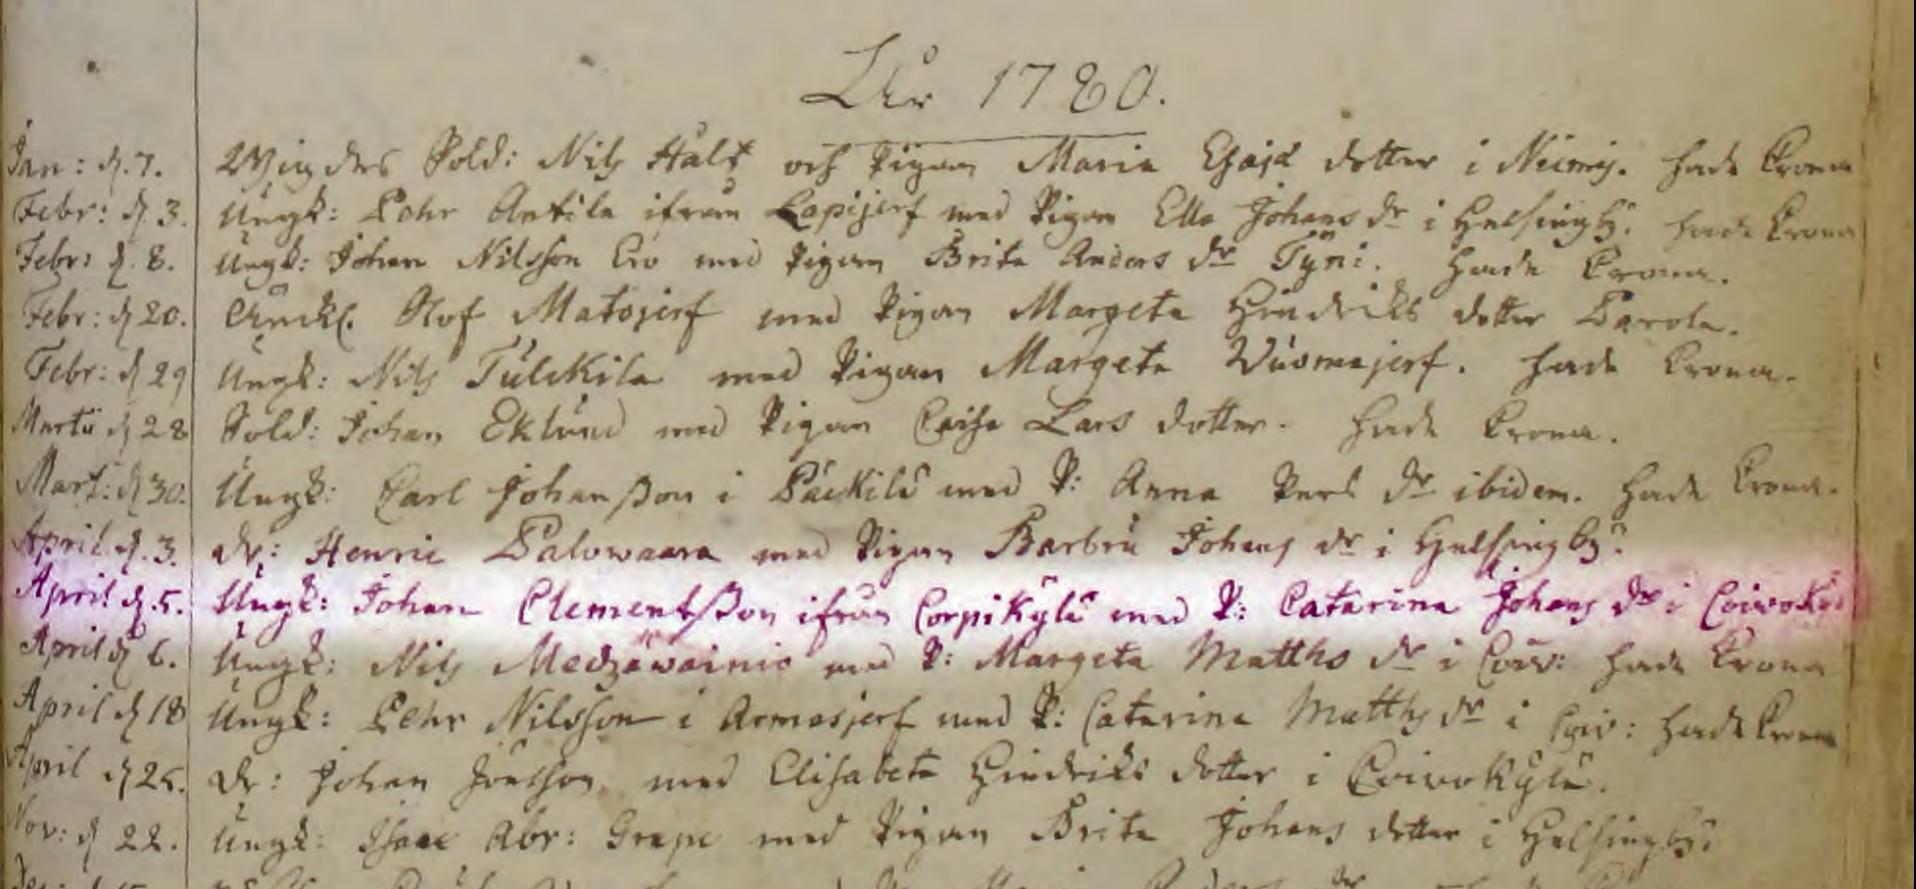 År 1780.
Jan: d. 7. Wigdes Sold: Nils Hält och Pigan Maria Esaja dotter i Niemis. hade Krona
Febr: d. 3. Ungk: Pehr Antila ifrån Lapijerf med Pigan Ella Johans dr i Helsingby. hade Krona
Febr: d. 8. Ungk: Johan Nilsson Ero med Pigan Brita Anders dr Tyni. hade Krona.
Febr: d 20. Änckl. Olof Matojerf med Pigan Margeta Hindriks dotter Barola.
Febr: d 29 Ungk: Nils Tulckila med Pigan Margeta Wuomajerf. hade Krona.
Martii d 28 Sold: Johan Eklund med Pigan Caisa Lars dotter. hade Krona.
Mart: d 30. Ungk: Carl Johansson i Päckilä med P: Anna Pers dr ibidem. hade Krona.
April d. 3. dr: Henric Palowaara med Pigan Barbru Johans dr i Helsingby.
April d. 5. Ungk: Johan Clementsson ifrån Corpikylä med P: Catarina Johans dr i
April d 6. Ungk: Nils med P: Margeta Matths dr i Coiv: hade Krona
April d 18 Ungk: Pehr Nilsson i Armasjerf med P: Catarina Matths dr i Coiv: hade Krona
April d 25. dr: Johan Jönsson med Elisabeta Hindriks dotter i Coivokylä.
Nov: d 22. Ungk: Isaac Abr: Grape med Pigan Brita Johans dotter i Helsingby.